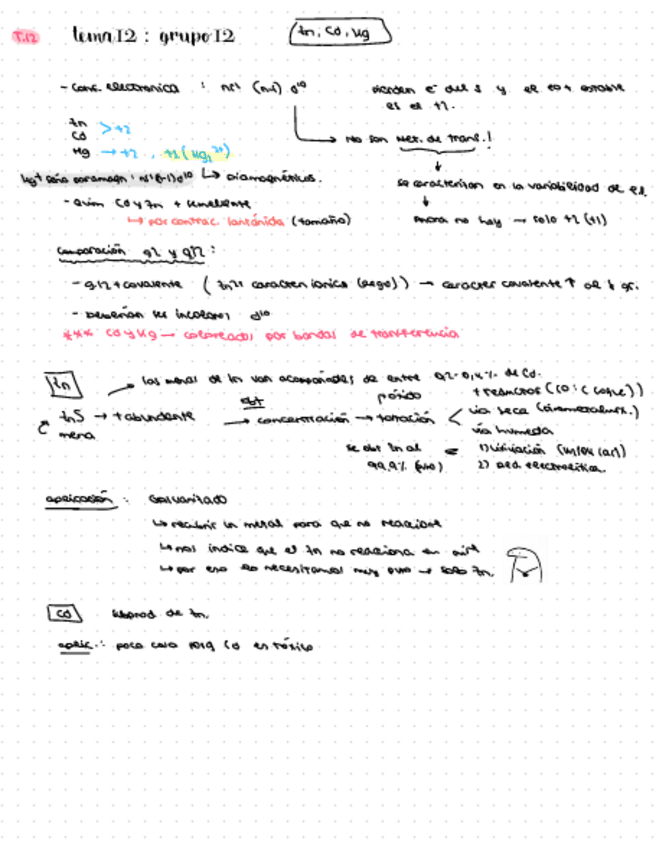 T.12 tema 12 : grupo 12 Zn, Cd, Hg
- Conf. electronica : ns² (n-1) d¹⁰
pierden e⁻ del s y el eo + estable es el +2.
Zn
Cd > +2
Hg → +2 , +1 (Hg₂²⁺)
→ No son Met. de trans.!
Hg⁺ sería paramagn.: ns¹(n-1)d¹⁰ ↳ Diamagnéticos.
se caracterizan en la variabilidad de e.o.
- Quim Cd y Zn + semejante
↳ por contrac. lantánida (tamaño)
Ahora no hay → solo +2 (+1)
comparación g2 y g12 :
- g12 + covalente ( Zn²⁺ caracter ionico (algo)) → caracter covalente ↑ al ↓ gr.
- Deberían ser incoloros d¹⁰
*** Cd y Hg → coloreados por bandas de transferencia
Zn
→ las menas de Zn van acompañadas de entre 0,2-0,4% de Cd.
ZnS → + abundente
mena
obt
→ concentración → tostación <
+ reductor (CO : C (coque))
via seca (pirometalurx.)
vía humeda
se obt Zn al 99,9% (puro) = 1) lixiviación
2) red. electrolítica.
aplicación : Galvanizado
↳ recubrir un metal para que no reaccione
↳ nos indica que el Zn no reacciona en aire
↳ por eso lo necesitamos muy puro → solo Zn.
Cd subprod de Zn.
aplic.: poca cosa porq Cd es tóxico